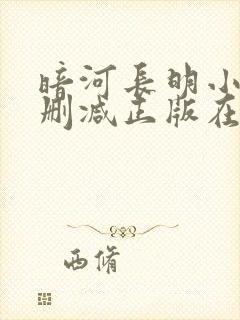 暗河長明小
刪減正版在
西脩